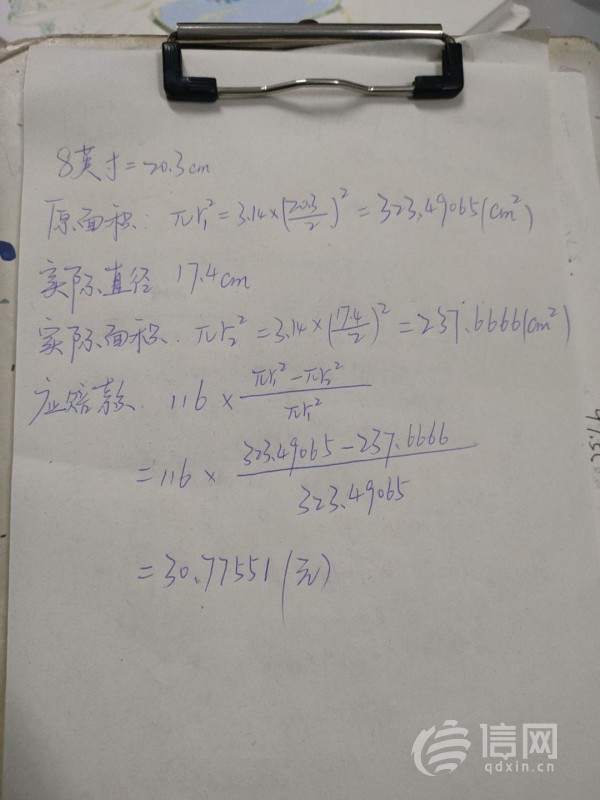 8英寸=20.3cm
原面积: πr₁²=3.14×(20.3/2)²=323.49065(cm²)
实际直径 17.4cm
实际面积. πr₂²=3.14×(17.4/2)²=237.6666(cm²)
应赔款. 116×(πr₁²-πr₂²)/πr₁²
=116×(323.49065-237.6666)/323.49065
=30.77551(元)
信网
qdxin.cn